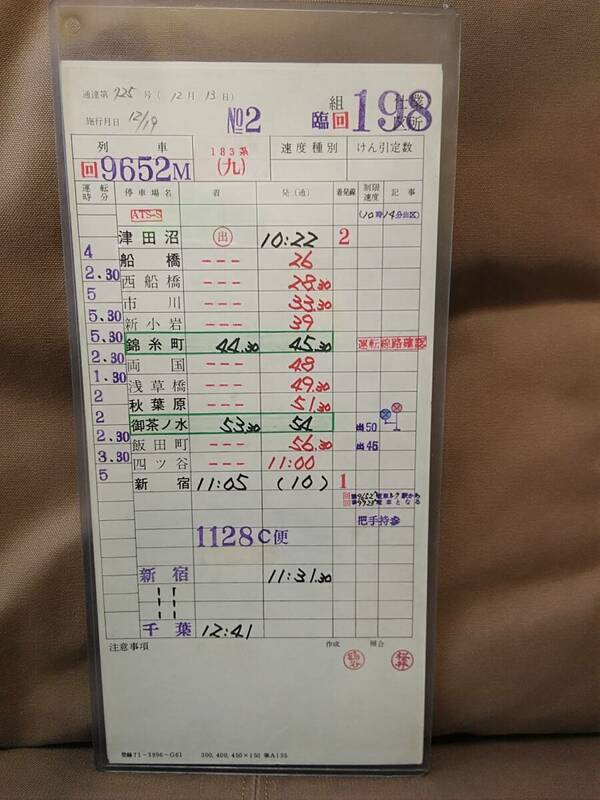 通達第 725 号 ( 12 月 13 日)
施行月日 12/19
№2
組 仕業
臨 回 198
区所
列 車 183系 速度種別 けん引定数
回 9652M (九)
運転時分 停車場名 着 発(通) 着発線 制限速度 記事
ATS-S (10時14分出区)
津田沼 出 10:22 2
4 船橋 --- 26
2.30 西船橋 --- 28.30
5 市川 --- 33.30
5.30 新小岩 --- 39
5.30 錦糸町 44.30 45.30 運転線路確認
2.30 両国 --- 48
1.30 浅草橋 --- 49.30
2 秋葉原 --- 51.30
2 御茶ノ水 53.30 54 出50
2.30 飯田町 --- 56.30 出45
3.30 四ツ谷 --- 11:00
5 新宿 11:05 (10) 1
把手持参
1128C便
新宿 11:31.30
千葉 12:41
注意事項 作成 照合
登録71-3896-G61 300,400,450×150 事A155